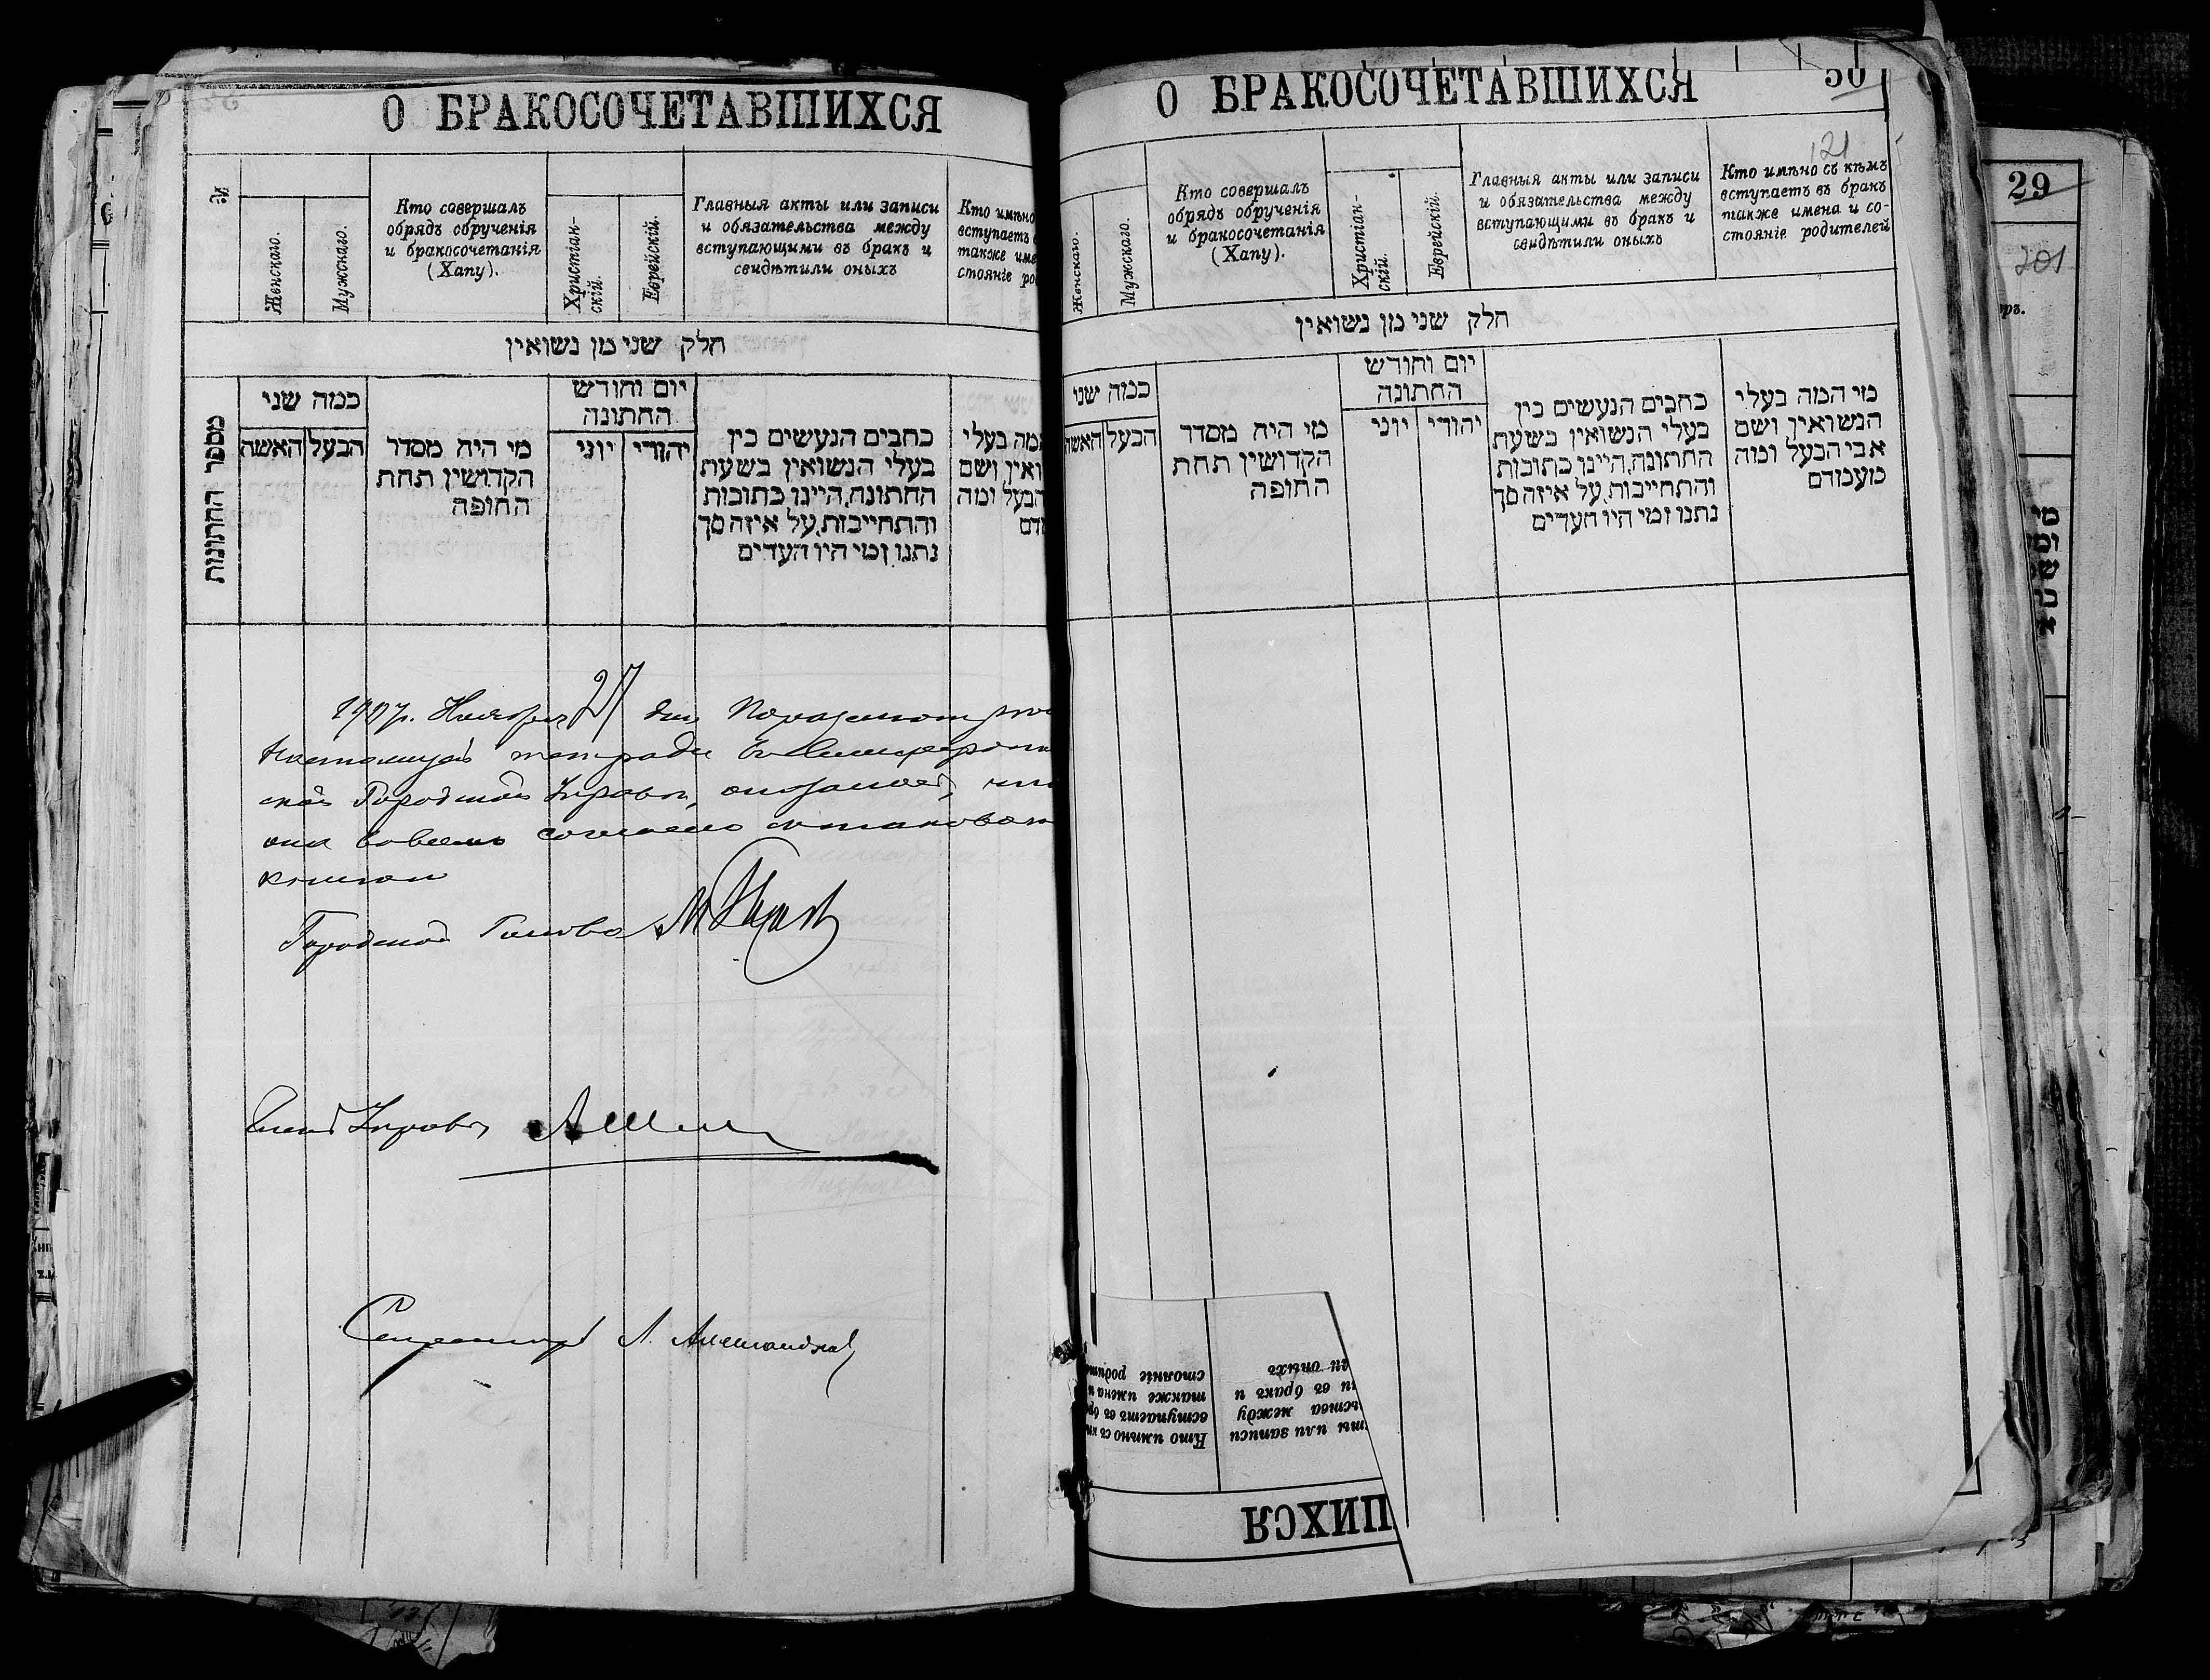 О БРАКОСОЧЕТАВШИХСЯ
№
Женскаго.
Мужскаго.
Кто совершалъ
обрядъ обрученія
и бракосочетанія
(Хапу).
Христіан-
скій.
Еврейскій.
Главныя акты или записи
и обязательства между
вступающими въ бракъ и
свидѣтили оныхъ
Кто имѣно
вступаетъ
также име
стояніе ро
חלק שני מן נשואין
מספר החתונות
כמה שני
האשה
הבעל
מי היה מסדר
הקדושין תחת
החופה
יום וחודש
החתונה
יוני
יהודי
כתבים הנעשים בין
בעלי הנשואין בשעת
החתונה, היינו כתובות
והתחייבות, על איזה סך
נתנו ומי היו העדים
המה בעלי
ואין ושם
הבעל ומה
1907 г. Ноября 27 дня
настоящей тетради въ Симферополь
ской Городской Управѣ, оказалось, что
она во всемъ согласно съ таковою
Городской Голова
Членъ Управы
Секретарь Л. Александровъ
О БРАКОСОЧЕТАВШИХСЯ
50
121
Женскаго.
Мужскаго.
Кто совершалъ
обрядъ обрученія
и бракосочетанія
(Хапу).
Христіан-
скій.
Еврейскій.
Главныя акты или записи
и обязательства между
вступающими въ бракъ и
свидѣтили оныхъ
Кто имѣно съ кѣмъ
вступаетъ въ бракъ
также имена и со-
стояніе родителей
חלק שני מן נשואין
כמה שני
האשה
הבעל
מי היה מסדר
הקדושין תחת
החופה
יום וחודש
החתונה
יוני
יהודי
כתבים הנעשים בין
בעלי הנשואין בשעת
החתונה, היינו כתובות
והתחייבות, על איזה סך
נתנו ומי היו העדים
מי המה בעלי
הנשואין ושם
אבי הבעל ומה
מעמדם
29
201
Кто имѣно съ к
вступаетъ въ бр
также имена и
стояніе родит
ты или записи
ьства между
и въ бракъ и
ли оныхъ
ШИХСЯ